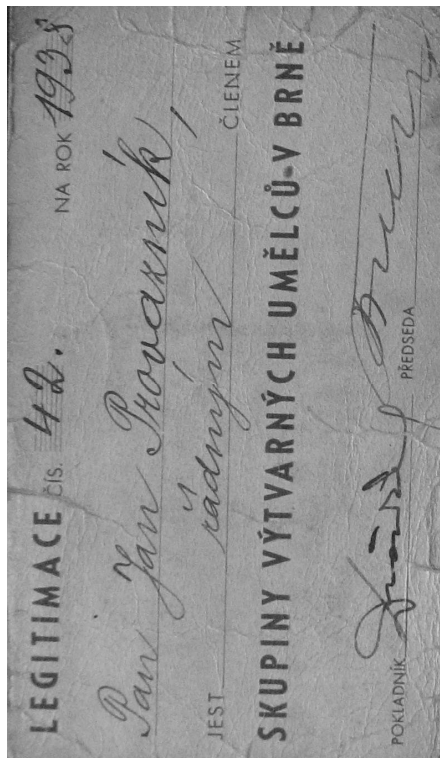 LEGITIMACE ČÍS. 42. NA ROK 1938
Pan Jan Provazník,
JEST řádným ČLENEM
SKUPINY VÝTVARNÝCH UMĚLCŮ V BRNĚ
POKLADNÍK PŘEDSEDA